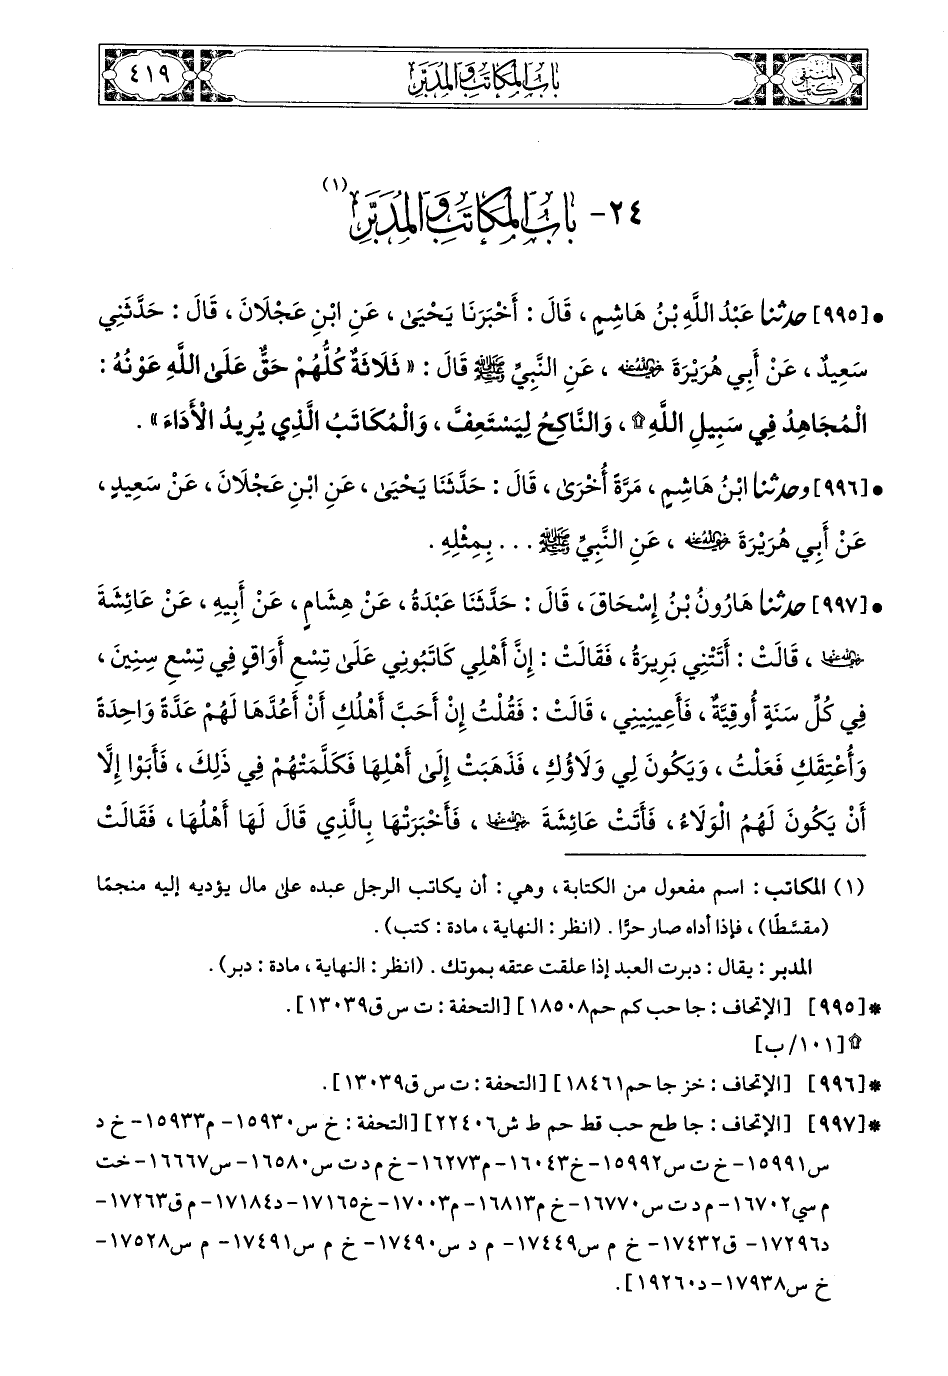 المنتقى
كتاب
باب المكاتب والمدبر
٤١٩
٢٤- باب المكاتب والمدبر (١)
• [٩٩٥] حدثنا عَبْدُ اللَّهِ بْنُ هَاشِمٍ ، قَالَ : أَخْبَرَنَا يَحْيَى ، عَنِ ابْنِ عَجْلَانَ ، قَالَ : حَدَّثَنِي
سَعِيدٌ ، عَنْ أَبِي هُرَيْرَةَ رضي الله عنه ، عَنِ النَّبِيِّ ﷺ قَالَ : « ثَلَاثَةٌ كُلُّهُمْ حَقٌّ عَلَى اللَّهِ عَوْنُهُ :
الْمُجَاهِدُ فِي سَبِيلِ اللَّهِ ۩ ، وَالنَّاكِحُ لِيَسْتَعِفَّ ، وَالْمُكَاتَبُ الَّذِي يُرِيدُ الْأَدَاءَ » .
• [٩٩٦] وحدثنا ابْنُ هَاشِمٍ ، مَرَّةً أُخْرَى ، قَالَ : حَدَّثَنَا يَحْيَى ، عَنِ ابْنِ عَجْلَانَ ، عَنْ سَعِيدٍ ،
عَنْ أَبِي هُرَيْرَةَ رضي الله عنه ، عَنِ النَّبِيِّ ﷺ . . . بِمِثْلِهِ .
• [٩٩٧] حدثنا هَارُونُ بْنُ إِسْحَاقَ ، قَالَ : حَدَّثَنَا عَبْدَةُ ، عَنْ هِشَامٍ ، عَنْ أَبِيهِ ، عَنْ عَائِشَةَ
رضي الله عنها ، قَالَتْ : أَتَتْنِي بَرِيرَةُ ، فَقَالَتْ : إِنَّ أَهْلِي كَاتَبُونِي عَلَى تِسْعِ أَوَاقٍ فِي تِسْعِ سِنِينَ ،
فِي كُلِّ سَنَةٍ أُوقِيَّةٌ ، فَأَعِينِينِي ، قَالَتْ : فَقُلْتُ إِنْ أَحَبَّ أَهْلُكِ أَنْ أَعُدَّهَا لَهُمْ عَدَّةً وَاحِدَةً
وَأُعْتِقَكِ فَعَلْتُ ، وَيَكُونُ لِي وَلَاؤُكِ ، فَذَهَبَتْ إِلَى أَهْلِهَا فَكَلَّمَتْهُمْ فِي ذَلِكَ ، فَأَبَوْا إِلَّا
أَنْ يَكُونَ لَهُمُ الْوَلَاءُ ، فَأَتَتْ عَائِشَةَ رضي الله عنها ، فَأَخْبَرَتْهَا بِالَّذِي قَالَ لَهَا أَهْلُهَا ، فَقَالَتْ
(١) المكاتب : اسم مفعول من الكتابة ، وهي : أن يكاتب الرجل عبده على مال يؤديه إليه منجمًا
(مقسَّطًا) ، فإذا أداه صار حرًّا . (انظر : النهاية ، مادة : كتب) .
المدبر : يقال : دبرت العبد إذا علقت عتقه بموتك . (انظر : النهاية ، مادة : دبر) .
*[٩٩٥] [الإتحاف : جا حب كم حم ١٨٥٠٨] [التحفة : ت س ق ١٣٠٣٩] .
۩[١٠١/ ب]
*[٩٩٦] [الإتحاف : خز جا حم ١٨٤٦١] [التحفة : ت س ق ١٣٠٣٩] .
*[٩٩٧] [الإتحاف : جا طح حب قط حم ط ش ٢٢٤٠٦] [التحفة : خ س ١٥٩٣٠- م ١٥٩٣٣- خ د
س ١٥٩٩١- خ ت س ١٥٩٩٢- خ ١٦٠٤٣- م ١٦٢٧٣- خ م د ت س ١٦٥٨٠- س ١٦٦٦٧- خت
م سي ١٦٧٠٢- م د ت س ١٦٧٧٠- خ م ١٦٨١٣- م ١٧٠٠٣- خ ١٧١٦٥- د ١٧١٨٤- م ق ١٧٢٦٣-
د ١٧٢٩٦- ق ١٧٤٣٢- خ م س ١٧٤٤٩- م د س ١٧٤٩٠- خ م س ١٧٤٩١- م س ١٧٥٢٨-
خ س ١٧٩٣٨- د ١٩٢٦٠] .